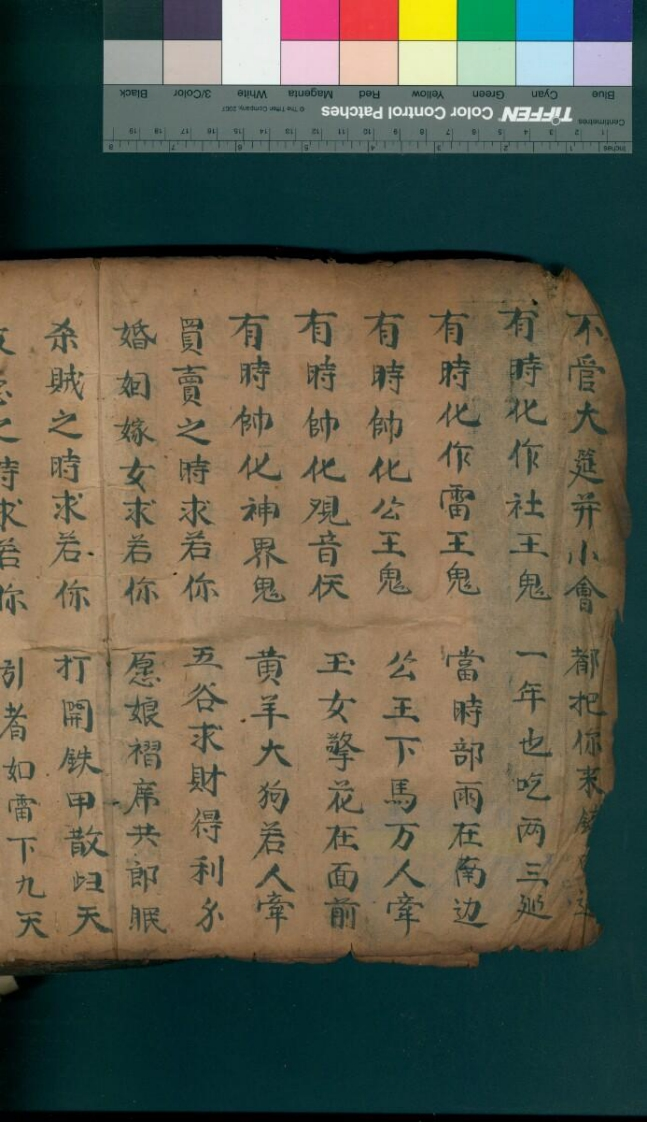 不管大筵并小會 都把你来
有時化作社王鬼 一年也吃两三延
有時化作雷王鬼 當時部雨在南边
有時帥化公王鬼 公王下馬万人牽
有時帥化观音伕 玉女擎花在面前
有時帥化神界鬼 黄羊大狗若人牽
買賣之時求若你 五谷求財得利
婚姻嫁女求若你 愿娘褶席共郎眠
杀賊之時求若你 打開鉄甲散归天
之時求若你 引者如雷下九天
Blue Cyan Green Yellow Red Magenta White 3/Color Black
TIFFEN Color Control Patches © The Tiffen Company, 2007
Centimetres 1 2 3 4 5 6 7 8 9 10 11 12 13 14 15 16 17 18 19
Inches 1 2 3 4 5 6 7 8